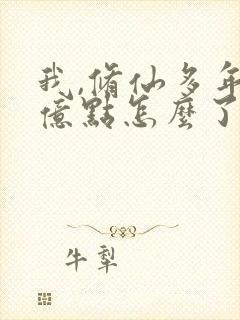 我,脩仙多年
億點怎麼了
牛犁